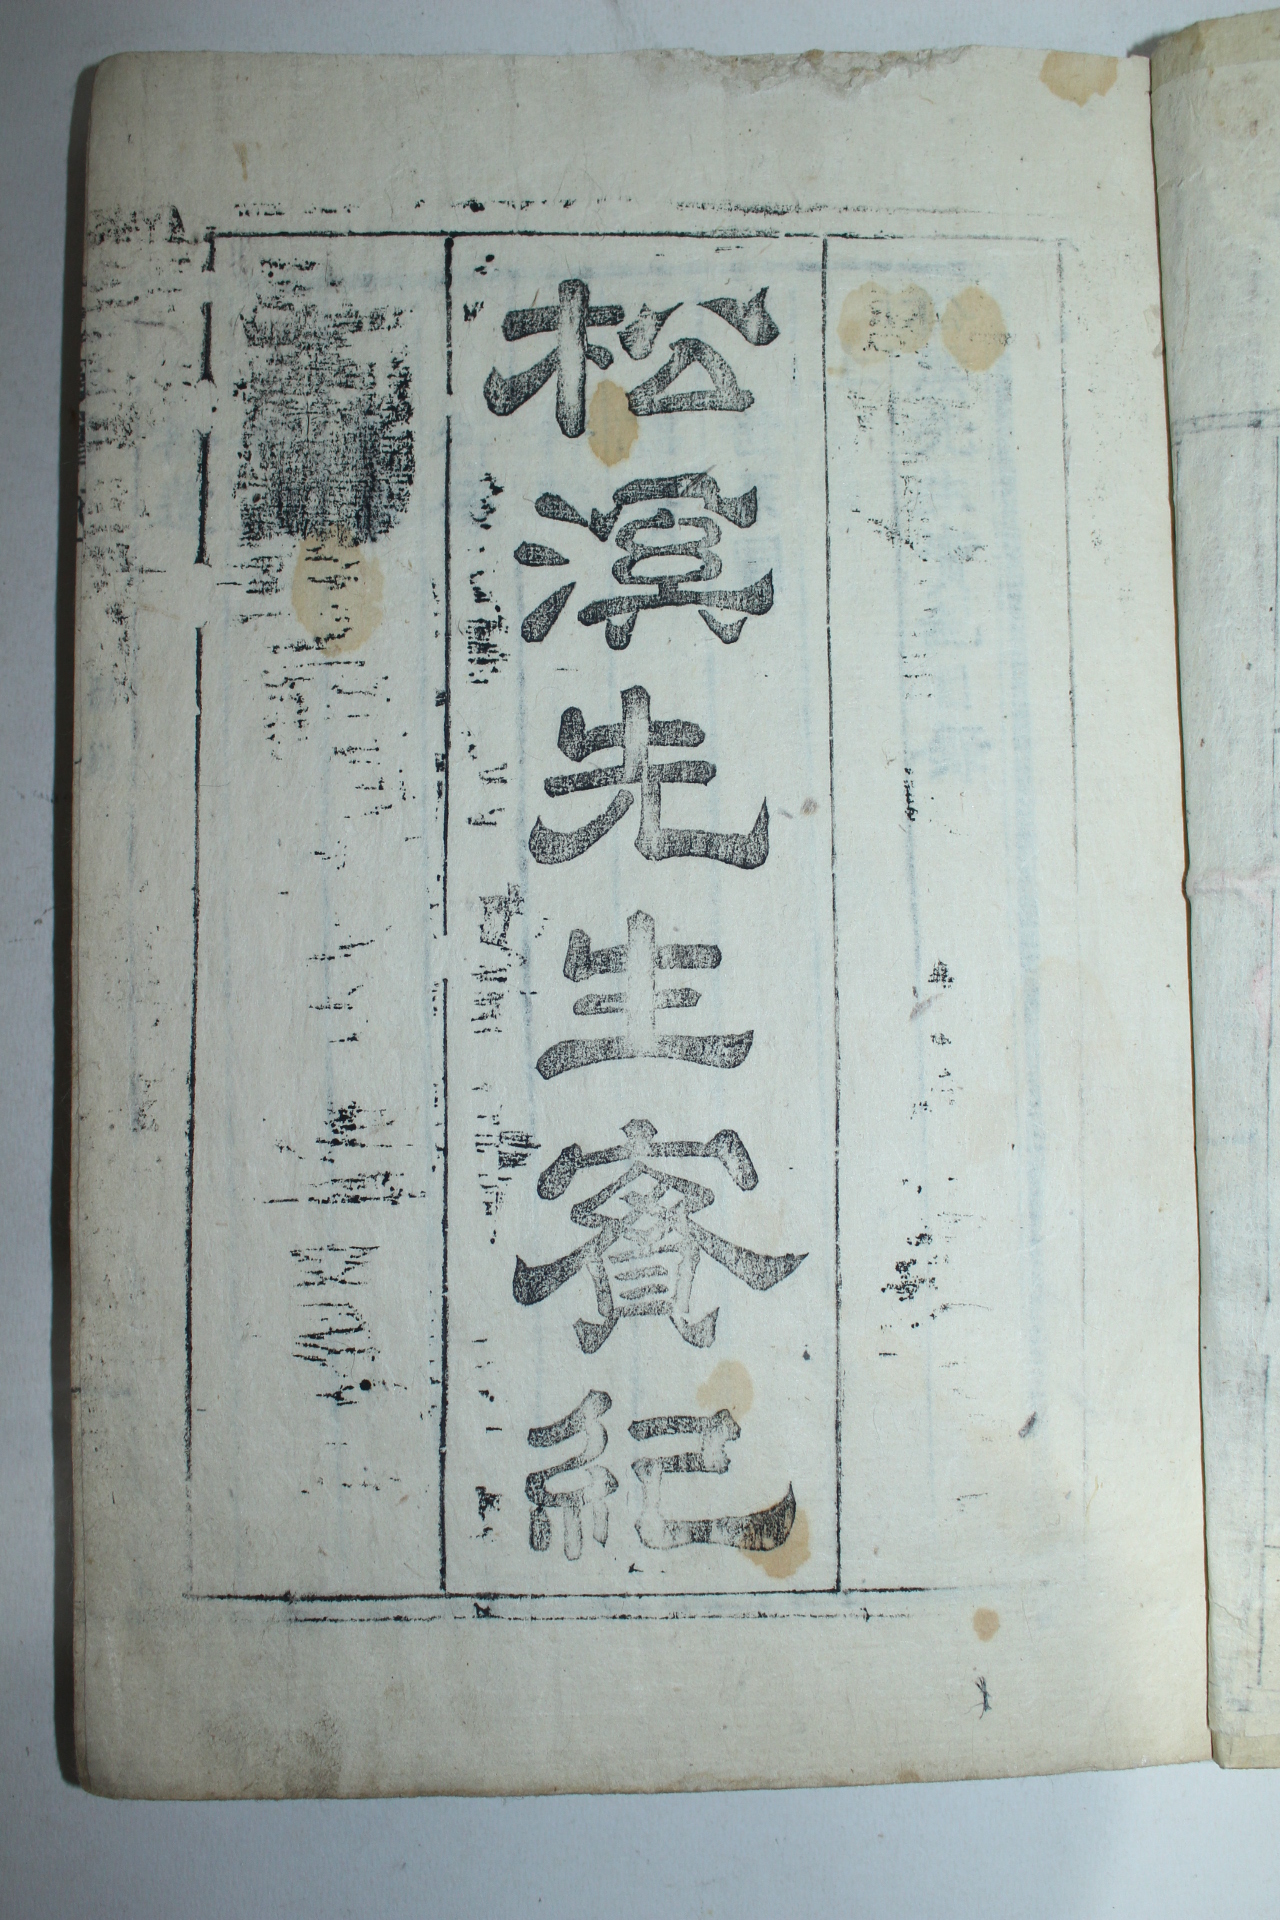 松溟先生賓紀